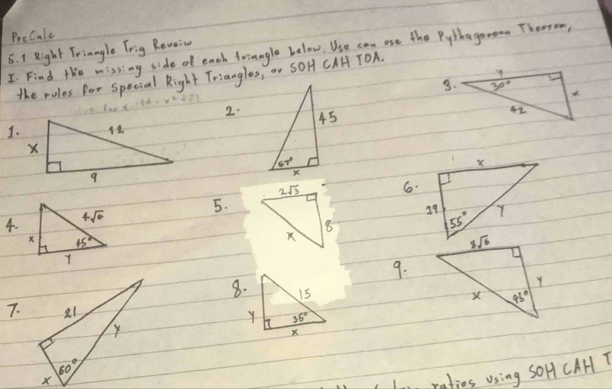 PreCalc
5.1 Right Triangle Trig Reveiw
I. Find the missing side of each triangle below. Use can use the Pythagorean Theorem,
the rules for Special Right Triangles, or SOH CAH TOA.
1.
x
12
9
2.
45
67°
x
3.
y
30°
x
42
4.
x
4√6
45°
y
5.
2√3
x
8
6.
x
39
55°
y
7.
21
y
x
60°
8.
15
y
35°
x
9.
8√6
x
y
45°
ratios using SOH CAH T